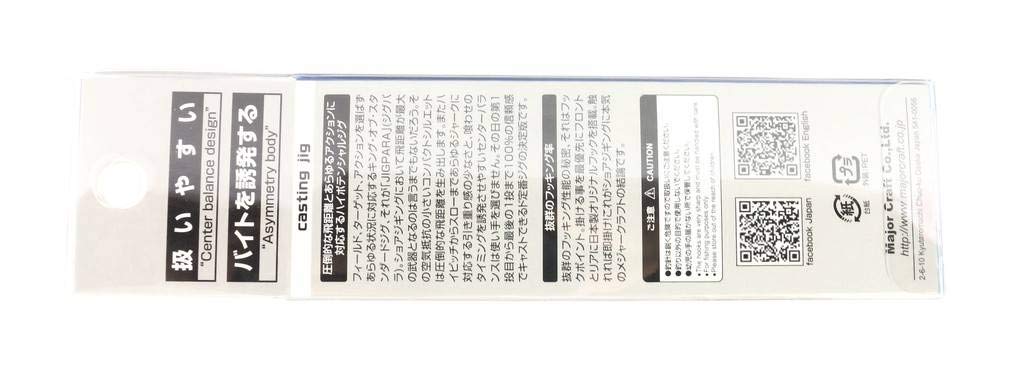 扱いやすい
"Center balance design"
バイトを誘発する
"Asymmetry body"
casting jig
圧倒的な飛距離とあらゆるアクションに
対応するハイポテンシャルジグ
フィールド、ターゲット、アクションを選ばず
あらゆる状況に対応するキング・オブ・スタ
ンダードジグ、それが「JIGPARA」(ジグパ
ラ)。ショアジギングにおいて飛距離が最大
の武器となるのは言うまでもないだろう。そ
の空気抵抗の小さいコンパクトシルエット
は圧倒的な飛距離を生み出します。またハ
イピッチからスローまであらゆるジャークに
対応する引き重り感の少なさと、喰わせの
タイミングを誘発させやすいセンターバラ
ンスは使い手を選びません。その日の第1
投目から最後の1投まで100%の信頼感
でキャストできるド定番ジグの決定版です。
抜群のフッキング率
抜群のフッキング性能の秘密、それはフッ
クポイント、掛ける事を最優先にフロント
とリアに日本製オリジナルフックを搭載。触
れれば即掛け!これがショアジギングに本気
のメジャークラフトの結論です。
ご注意 ⚠ CAUTION
●釣針は鋭く危険ですので取扱いにご注意ください。
●釣り以外の目的で使用しないでください。
●幼児の手の届かない所で保管してください。
●The hooks are very sharp
●For fishing purposes only.
●Please store out of the reach of children.
facebook English
facebook Japan
プラ
外装:PET
紙
台紙
Major Craft Co.,Ltd.
http://www.majorcraft.co.jp
2-6-10 Kyutaromachi Chuo-ku Osaka Japan 541-0056